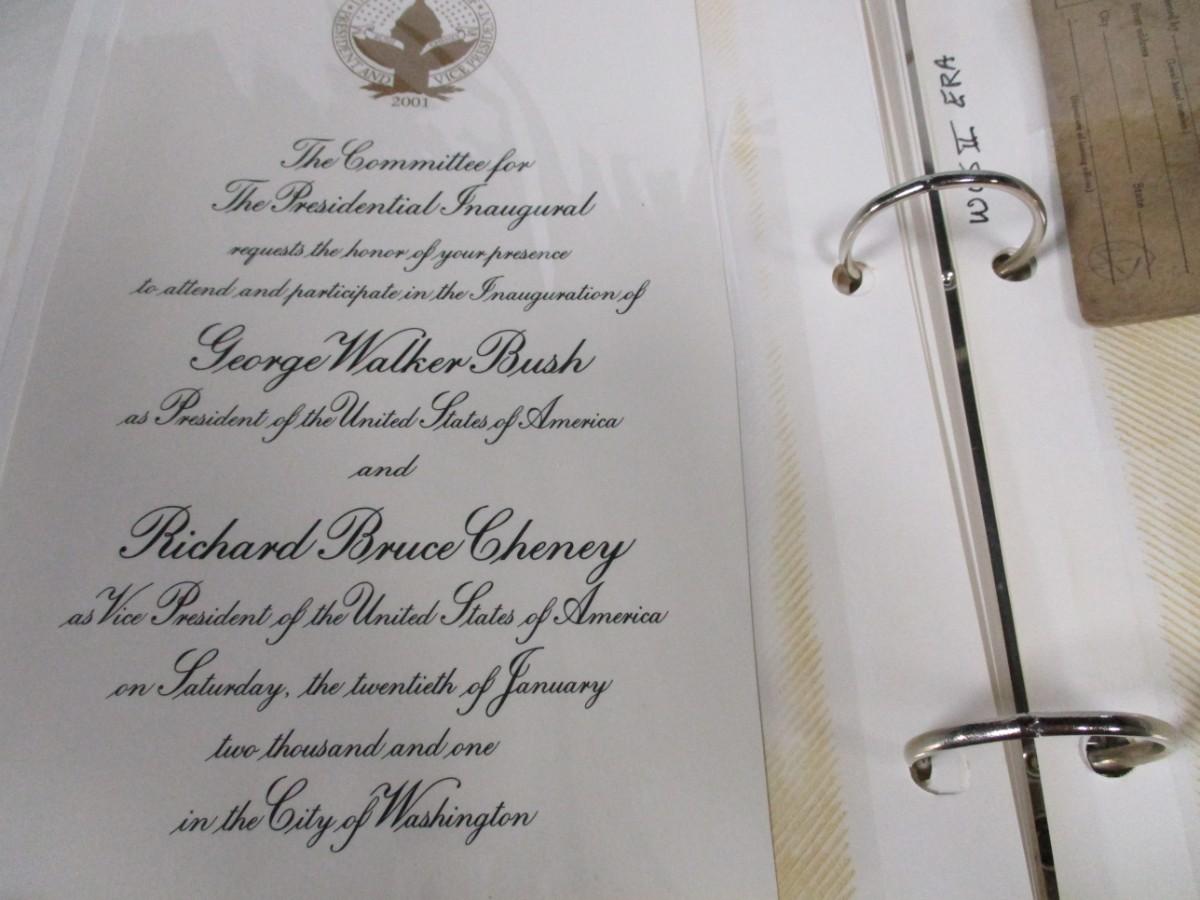 PRESIDENT AND VICE PRESIDE
2001
The Committee for
The Presidential Inaugural
requests the honor of your presence
to attend and participate in the Inauguration of
George Walker Bush
as President of the United States of America
and
Richard Bruce Cheney
as Vice President of the United States of America
on Saturday, the twentieth of January
two thousand and one
in the City of Washington
II ERA
City
State